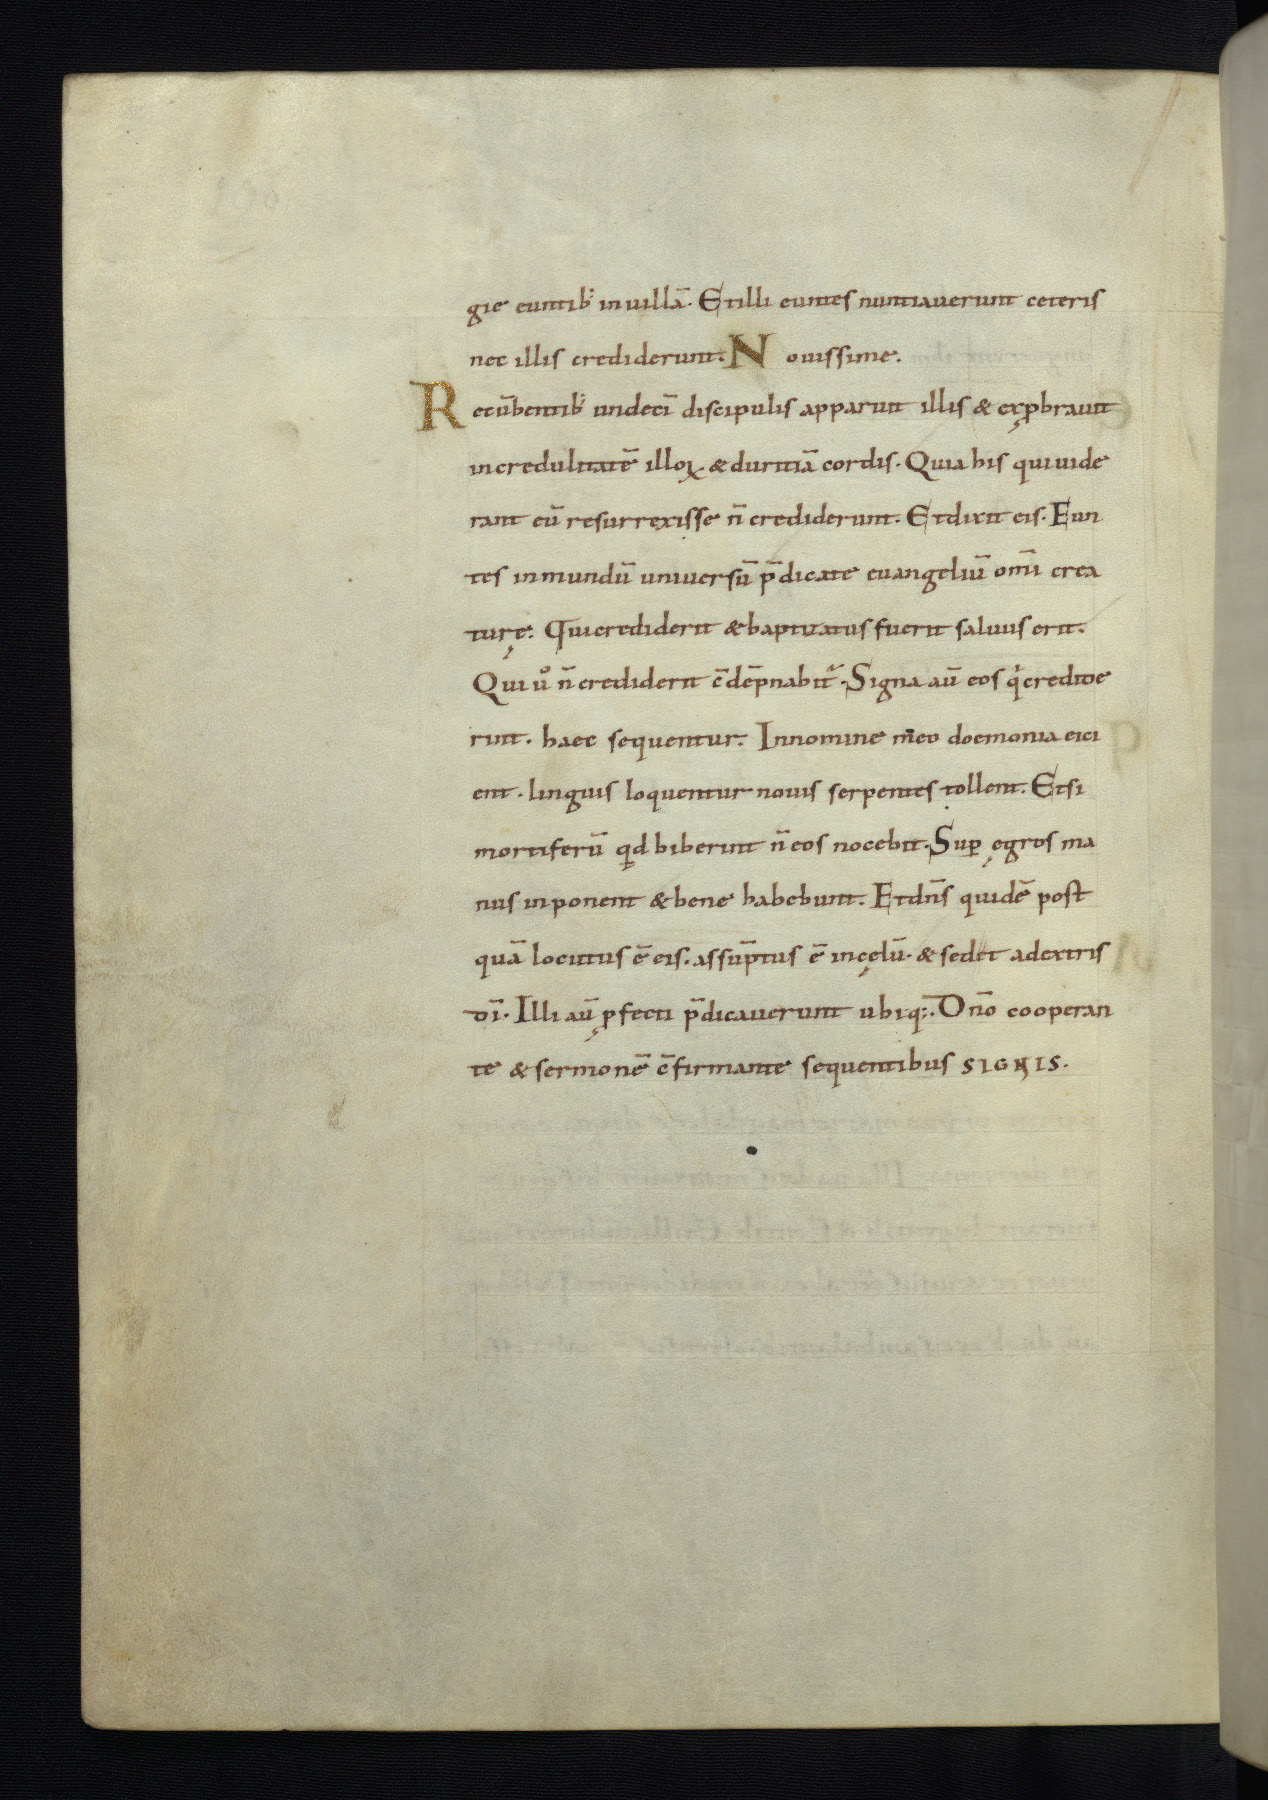 gie euntib; in uillā. Et illi euntes nuntiauerunt ceteris
nec illis crediderunt. Nouissime.
Recūbentib; undecī discipulis apparuit illis & exprobrauit
incredulitatē illoꝝ & duritiā cordis. Quia his qui uide
rant eū resurrexisse n̄ crediderunt. Et dixit eis. Eun
tes in mundū uniuersū p̄dicate euangeliū om̄i crea
turę. Qui crediderit & baptizatus fuerit saluus erit.
Qui ů n̄ crediderit c̄dēpnabit᷑. Signa aū eos q̇ credide
rint. haec sequentur. In nomine meo doemonia eici
ent. linguis loquentur nouis serpentes tollent. Et si
mortiferū qd biberint n̄ eos nocebit. Suꝑ ęgros ma
nus inponent & bene habebunt. Et dn̄s quidē post
quā locutus ē eis. assūptus ē in cęlū. & sedet a dextris
dī. Illi aū ꝓfecti p̄dicauerunt ubiq;. Dn̄o cooperan
te & sermonē c̄firmante sequentibus SIGNIS.